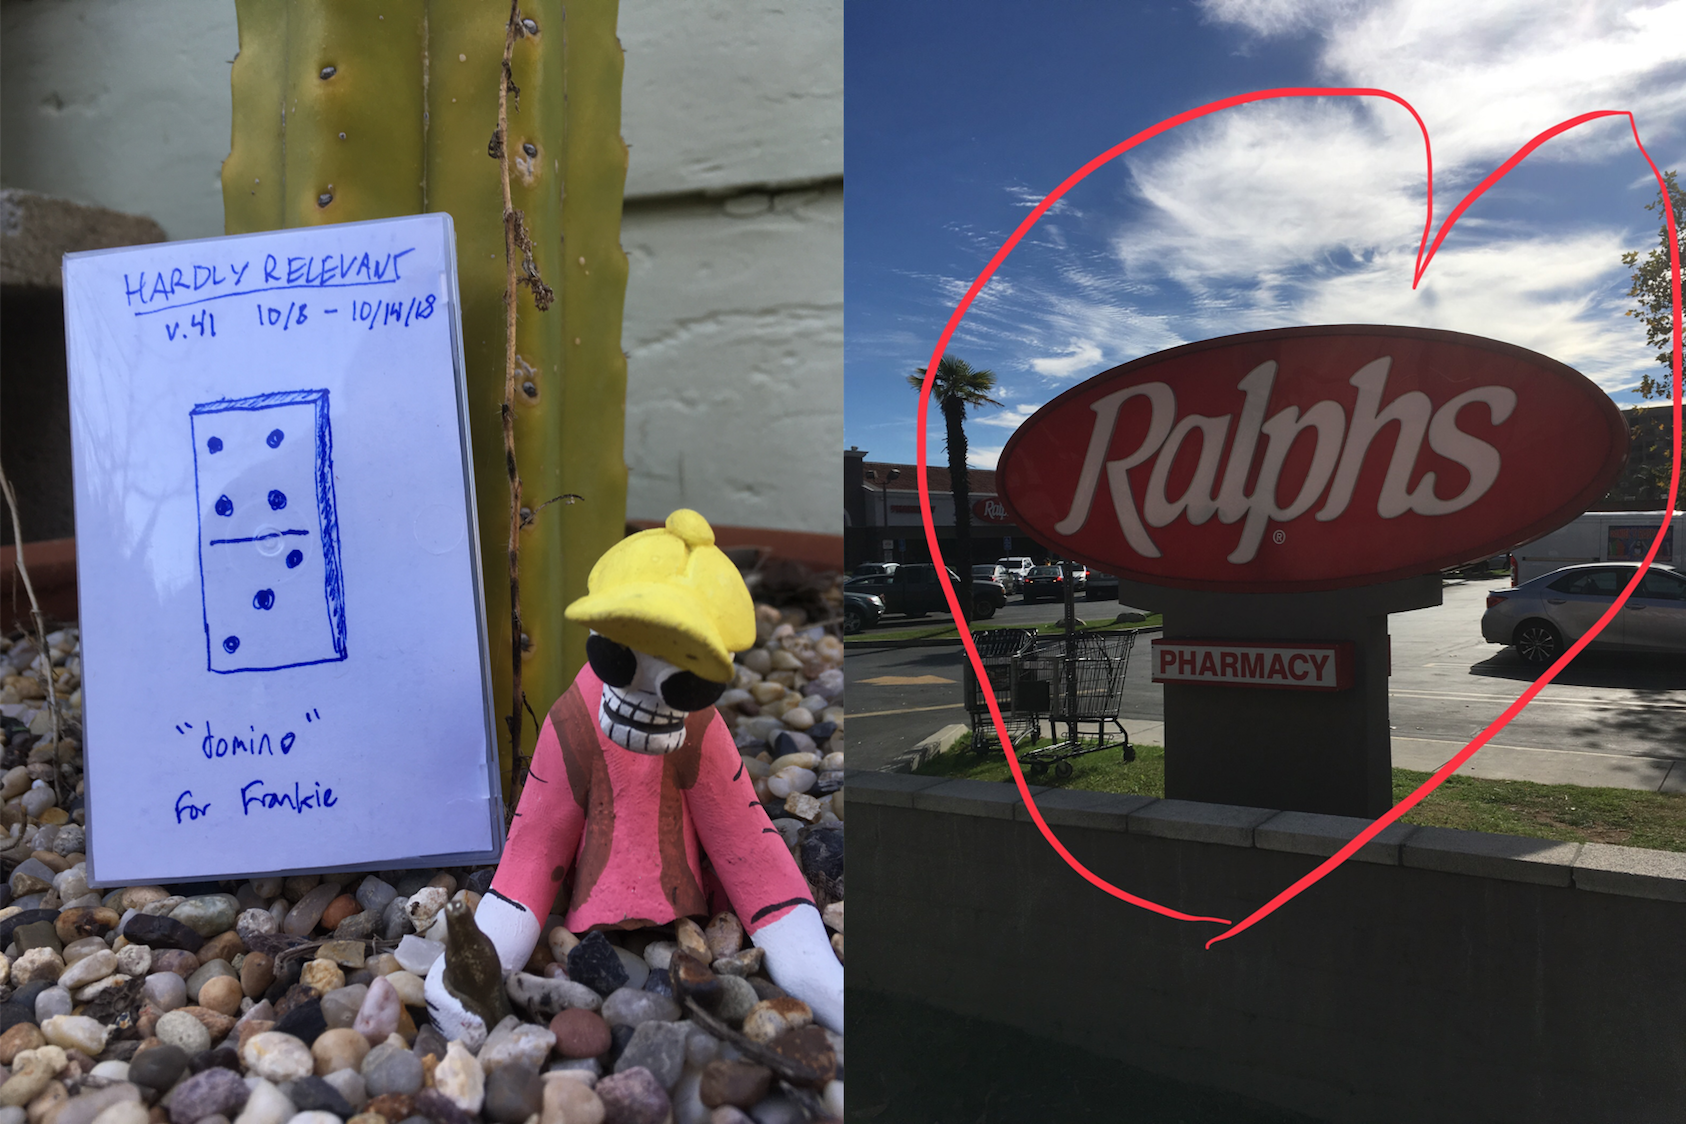 HARDLY RELEVANT
v.41 10/8 - 10/14/18
"domino"
For Frankie
Ralphs
®
PHARMACY